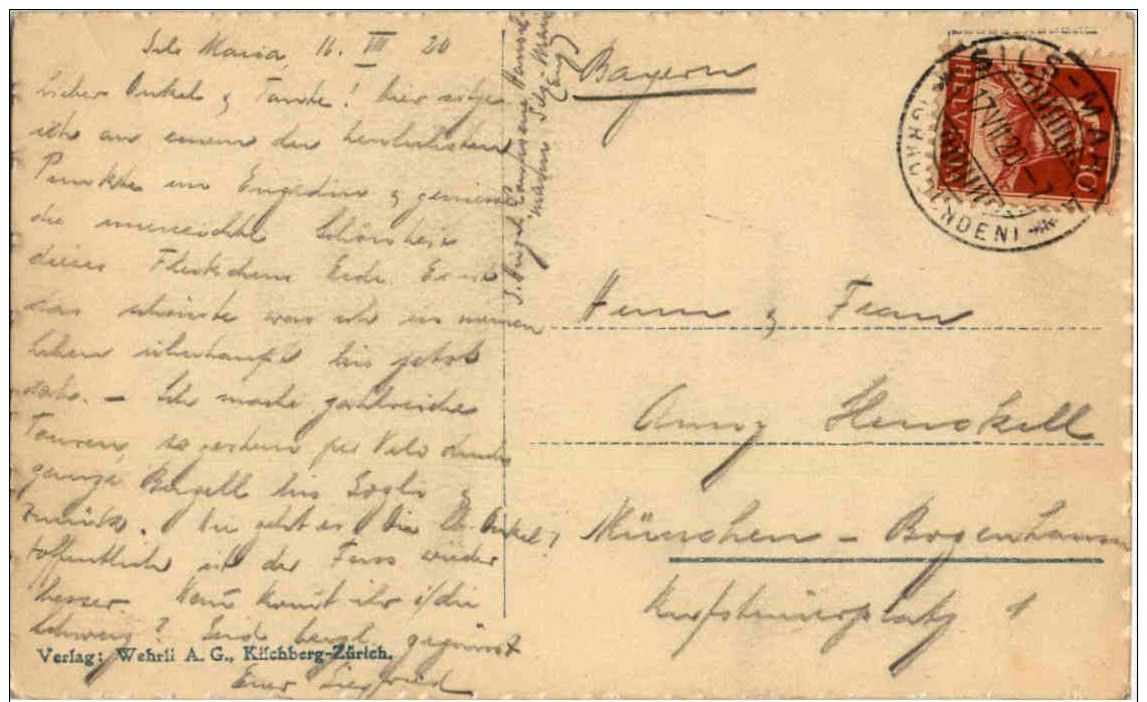 Sils Maria, 16. VII 20
Lieber Onkel & Tante! Hier sitze
ich an einem der herrlichsten
Punkte im Engadin & geniesse
die unerreichte Schönheit
dieses Fleckchens Erde. Es ist
das schönste was ich in meinem
Leben überhaupt bis jetzt
sah. – Ich mache zahlreiche
Touren, so gestern per Velo durchs
ganze Bergell bis Soglio &
zurück. Wie geht es Dir lb. Onkel?
Hoffentlich ist der Fuss wieder
besser. Wann kommt ihr i/die
Schweiz? Seid herzl. gegrüsst
Euer Siegfried
Verlag: Wehrli A. G., Kilchberg-Zürich.
Bayern
SILS-MARIA
17.VII.20
HELVETIA
10
Herrn & Frau
Henckell
München - Bogenhausen
1